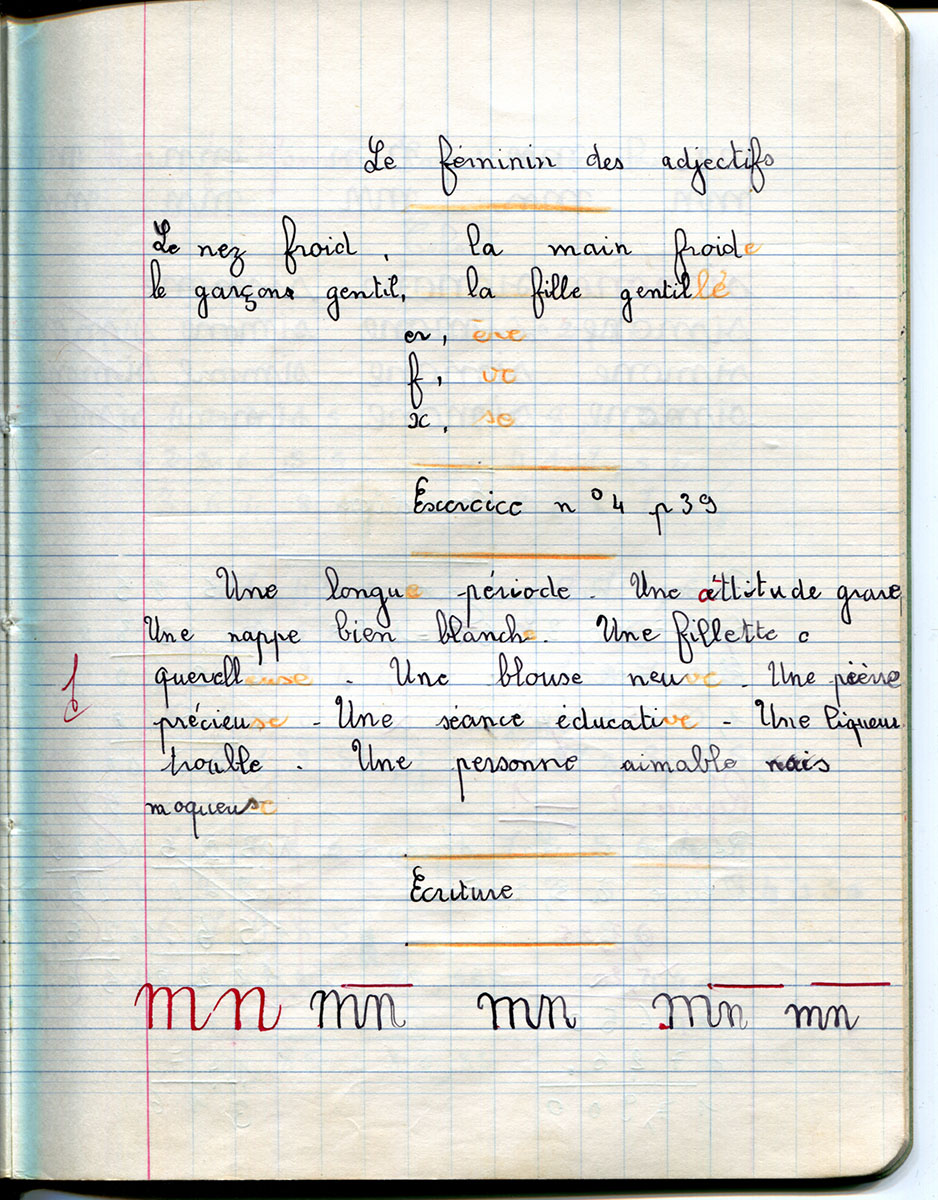 Le féminin des adjectifs
Le nez froid, la main froide
le garçons gentil, la fille gentille
er, ère
f, ve
x, se
Exercice n° 4 p 39
Une longue période. Une attitude grave
Une nappe bien blanche. Une fillette
querelleuse. Une blouse neuve. Une pierre
précieuse - Une séance éducative - Une liqueur
trouble. Une personne aimable mais
moqueuse
Écriture
mn mn mn mn mn